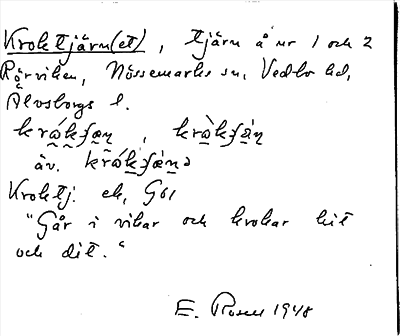 Kroktjärn(et), tjärn å nr 1 och 2
Rörviken, Nössemarks sn, Vedbo hd,
Älvsborgs l.
äv.
Kroktj. ek, G61
"Går i vikar och krokar hit
och dit."
E. Rosell 1948